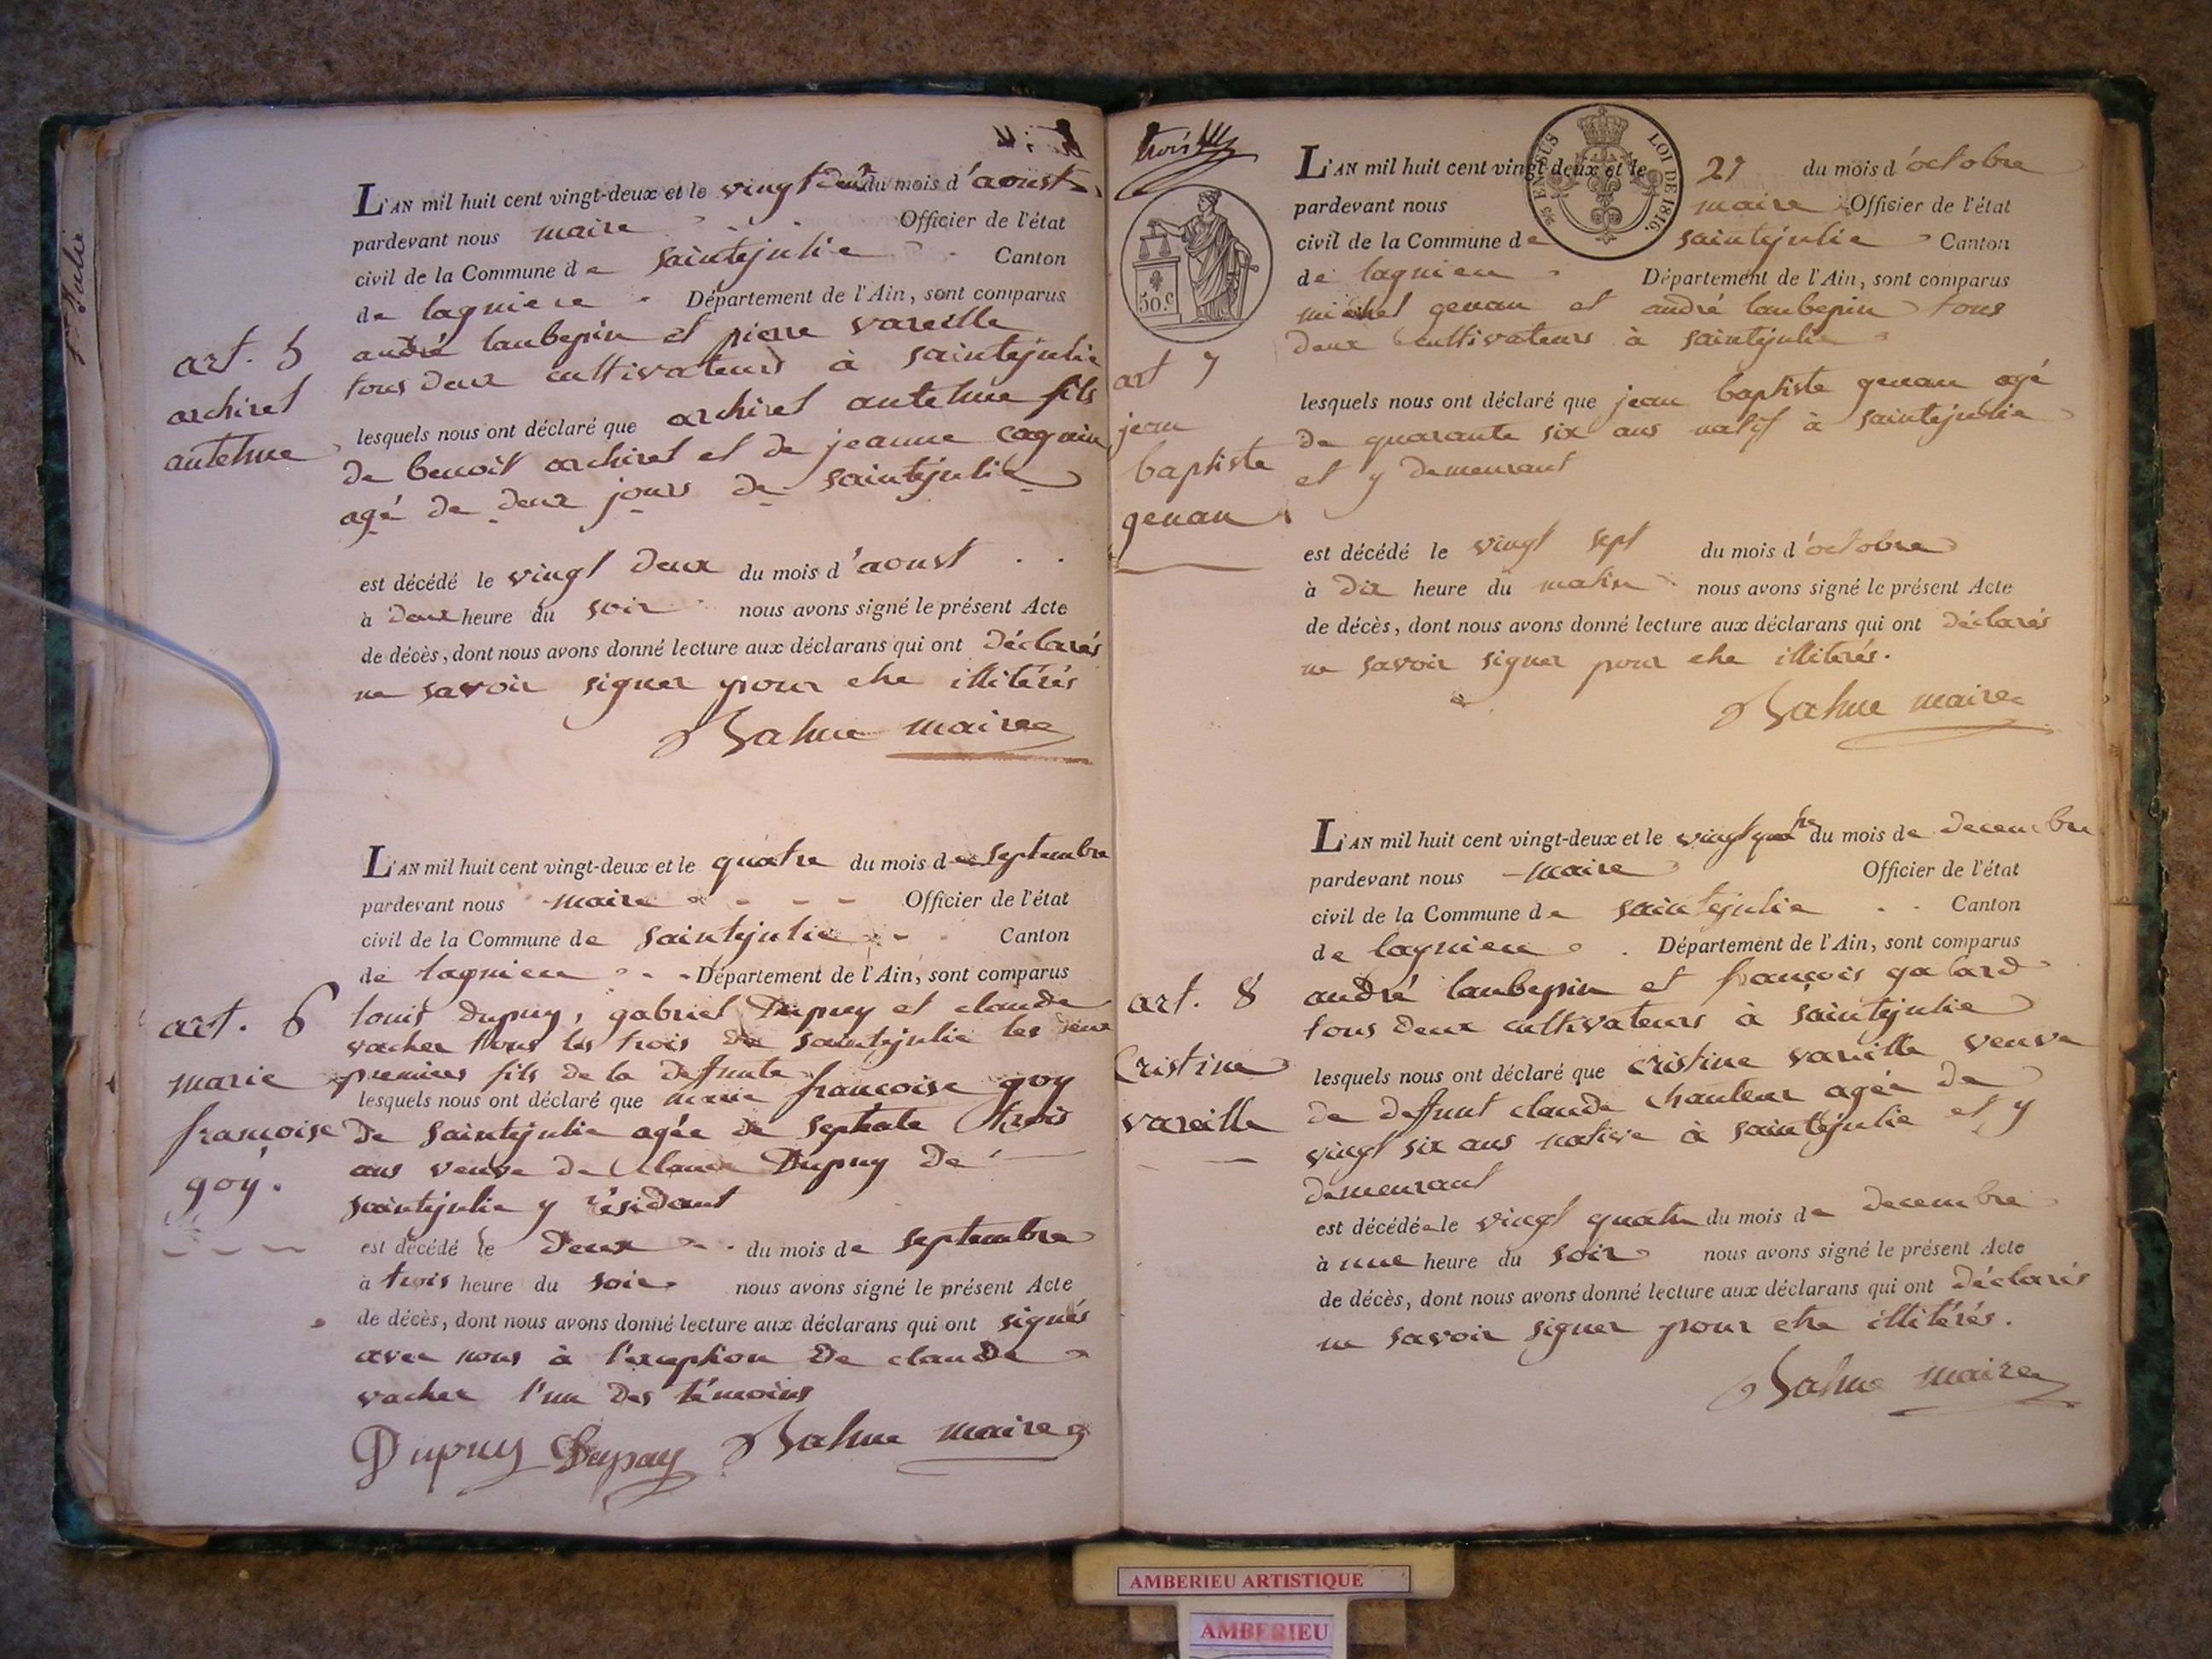 Ste Julie
L'AN mil huit cent vingt-deux et le vingt deux du mois d'aoust
pardevant nous maire Officier de l'état
civil de la Commune de saintejulie Canton
de lagnieu Département de l'Ain, sont comparus
art. 5
archiret
antelme
andré laubepin et pierre vareille
tous deux cultivateurs à saintejulie
lesquels nous ont déclaré que archiret antelme fils
de benoit archiret et de jeanne cagnin
agé de deux jours de saintejulie
est décédé le vingt deux du mois d'aoust
à deux heure du soir nous avons signé le présent Acte
de décès, dont nous avons donné lecture aux déclarans qui ont déclarés
ne savoir signer pour etre illitérés
maire
L'AN mil huit cent vingt-deux et le quatre du mois de septembre
pardevant nous maire Officier de l'état
civil de la Commune de saintejulie Canton
de lagnieu Département de l'Ain, sont comparus
art. 6
marie
françoise
goy.
louis dupuy, gabriel Dupuy et claude
vacher tous les trois de saintejulie les deux
premiers fils de la defunte
lesquels nous ont déclaré que marie francoise goy
de saintejulie agée de septente trois
ans veuve de claude Dupuy de
saintejulie y résidant
est décédé le deux du mois de septembre
à trois heure du soir nous avons signé le présent Acte
de décès, dont nous avons donné lecture aux déclarans qui ont signés
avec nous à l'exception de claude
vacher l'un des témoins
Dupuy Dupuy maire
trois
50 c.
EN SUS LOI DE 1816.
L'AN mil huit cent vingt-deux et le 27 du mois d'octobre
pardevant nous maire Officier de l'état
civil de la Commune de saintejulie Canton
de lagnieu Département de l'Ain, sont comparus
art 7
jean
baptiste
genan
michel genan et andré laubepin tous
deux cultivateurs à saintejulie
lesquels nous ont déclaré que jean baptiste genan agé
de quarante six ans natif à saintejulie
et y demeurant
est décédé le vingt sept du mois d'octobre
à dix heure du matin nous avons signé le présent Acte
de décès, dont nous avons donné lecture aux déclarans qui ont déclarés
ne savoir signer pour etre illitérés.
maire
L'AN mil huit cent vingt-deux et le vingt quatre du mois de decembre
pardevant nous maire Officier de l'état
civil de la Commune de saintejulie Canton
de lagnieu Département de l'Ain, sont comparus
art. 8
Cristine
vareille
andré laubepin et françois galard
tous deux cultivateurs à saintejulie
lesquels nous ont déclaré que cristine vareille veuve
de deffunt claude chanteur agée de
vingt six ans native à saintejulie et y
demeurant
est décédée le vingt quatre du mois de decembre
à une heure du soir nous avons signé le présent Acte
de décès, dont nous avons donné lecture aux déclarans qui ont déclarés
ne savoir signer pour etre illitérés.
maire
AMBERIEU ARTISTIQUE
AMBERIEU